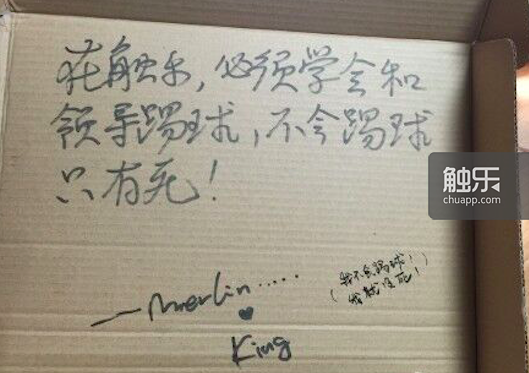 在触乐,必须学会和
领导踢球,不会踢球
只有死!
——Merlin.....
♥
King
(我不会踢球!
我就没死!)
触乐
chuapp.com